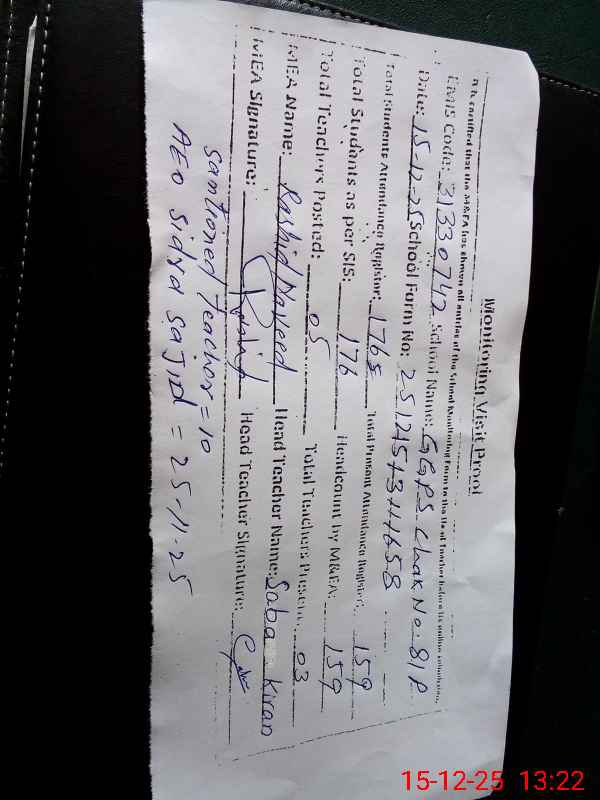 Monitoring Visit Proof
It is certified that the M&EA has shown all entries of the School Monitoring Form to the Head Teacher before its online submission.
EMIS Code: 31330742 School Name: GGPS Chak No. 81P
Date: 15-12-25 School Form No:
Total Students Attendance Register: 176 Total Present Attendance Register: 159
Total Students as per SIS: 176 Headcount by M&EA: 159
Total Teachers Posted: 05 Total Teachers Present: 03
MEA Name: Rashid Naveed Head Teacher Name: Saba Kiran
MEA Signature: Rashid Head Teacher Signature:
Santioned Teacher = 10
AEO Sidra SAJID = 25-11-25
15-12-25 13:22